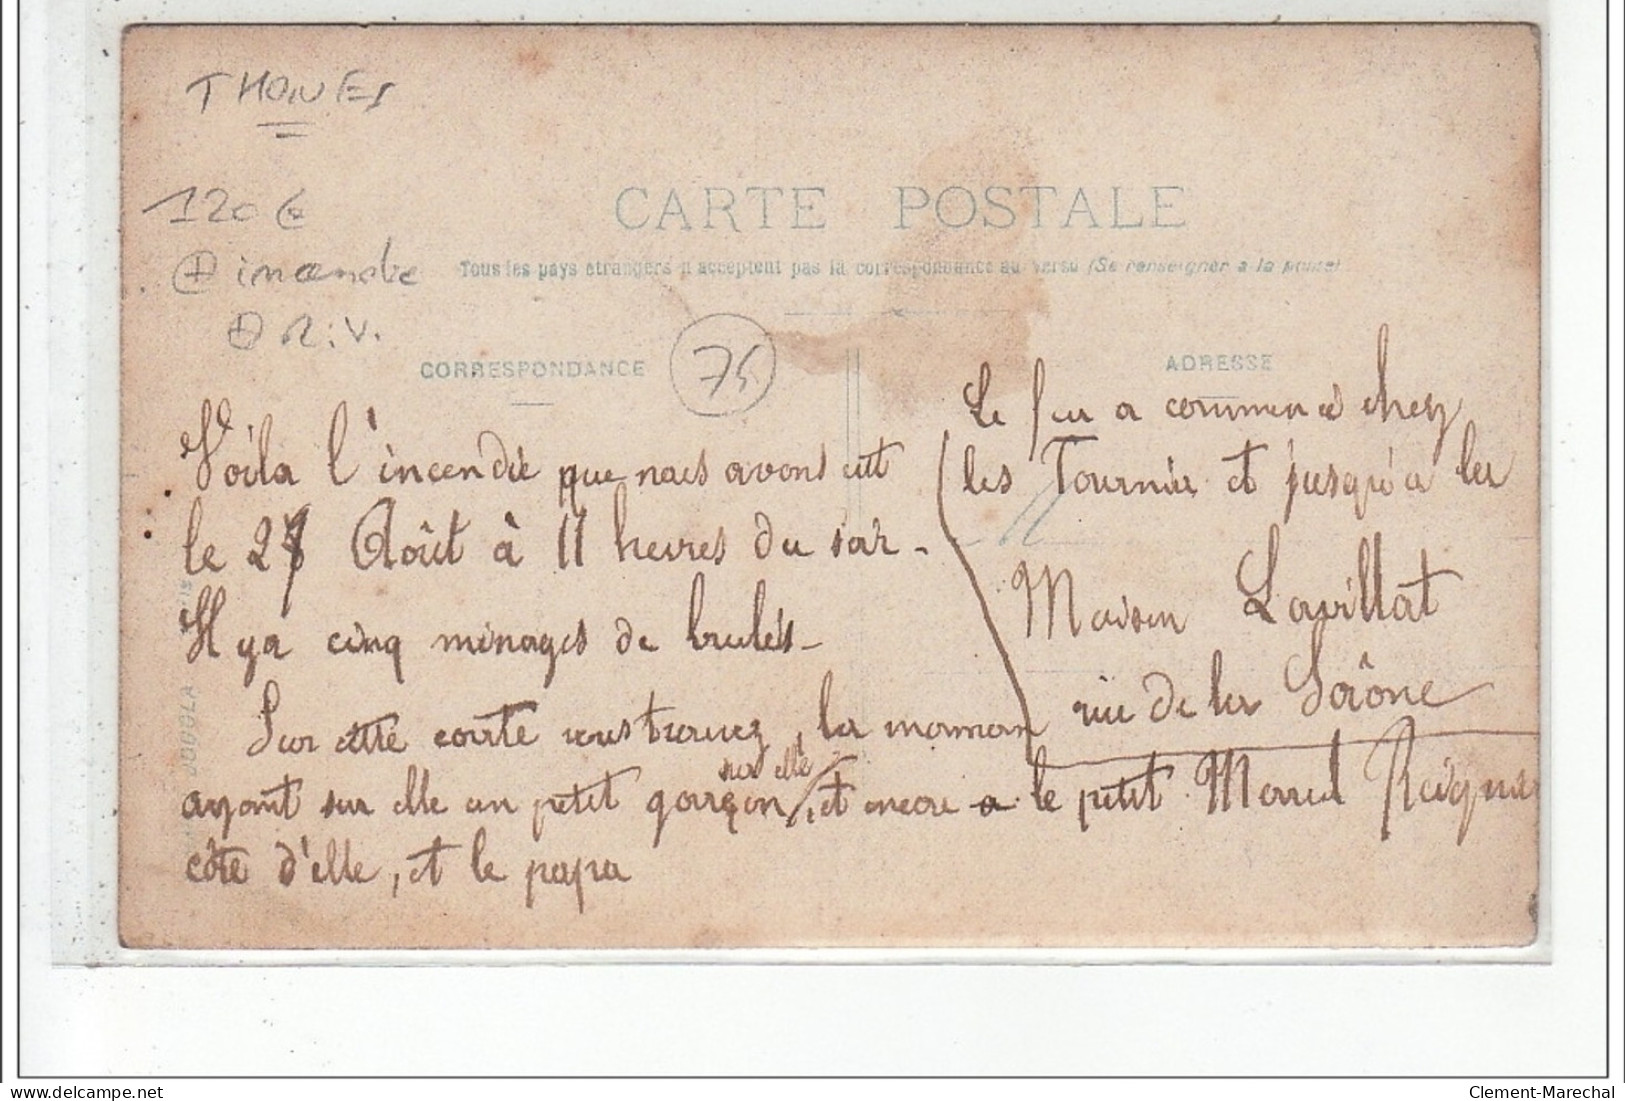 THONES
120€
+ incendie
+ R.V.
CARTE POSTALE
Tous les pays étrangers n'acceptent pas la correspondance au verso (Se renseigner à la poste)
CORRESPONDANCE
75
ADRESSE
Voila l'incendie que nous avons eut
le 27 Août à 11 heures du soir -
Il y a cinq ménages de brulés -
Sur cette carte vous trouvez, la maman
sur elle
ayant sur elle un petit garçon, et encore a
côté d'elle, et le papa
Le feu a commencé chez
les Tournier et jusqu'a la
Maison Lavillat
rue de la Saône
le petit Marcel
JOUGLA
Clement-Marechal